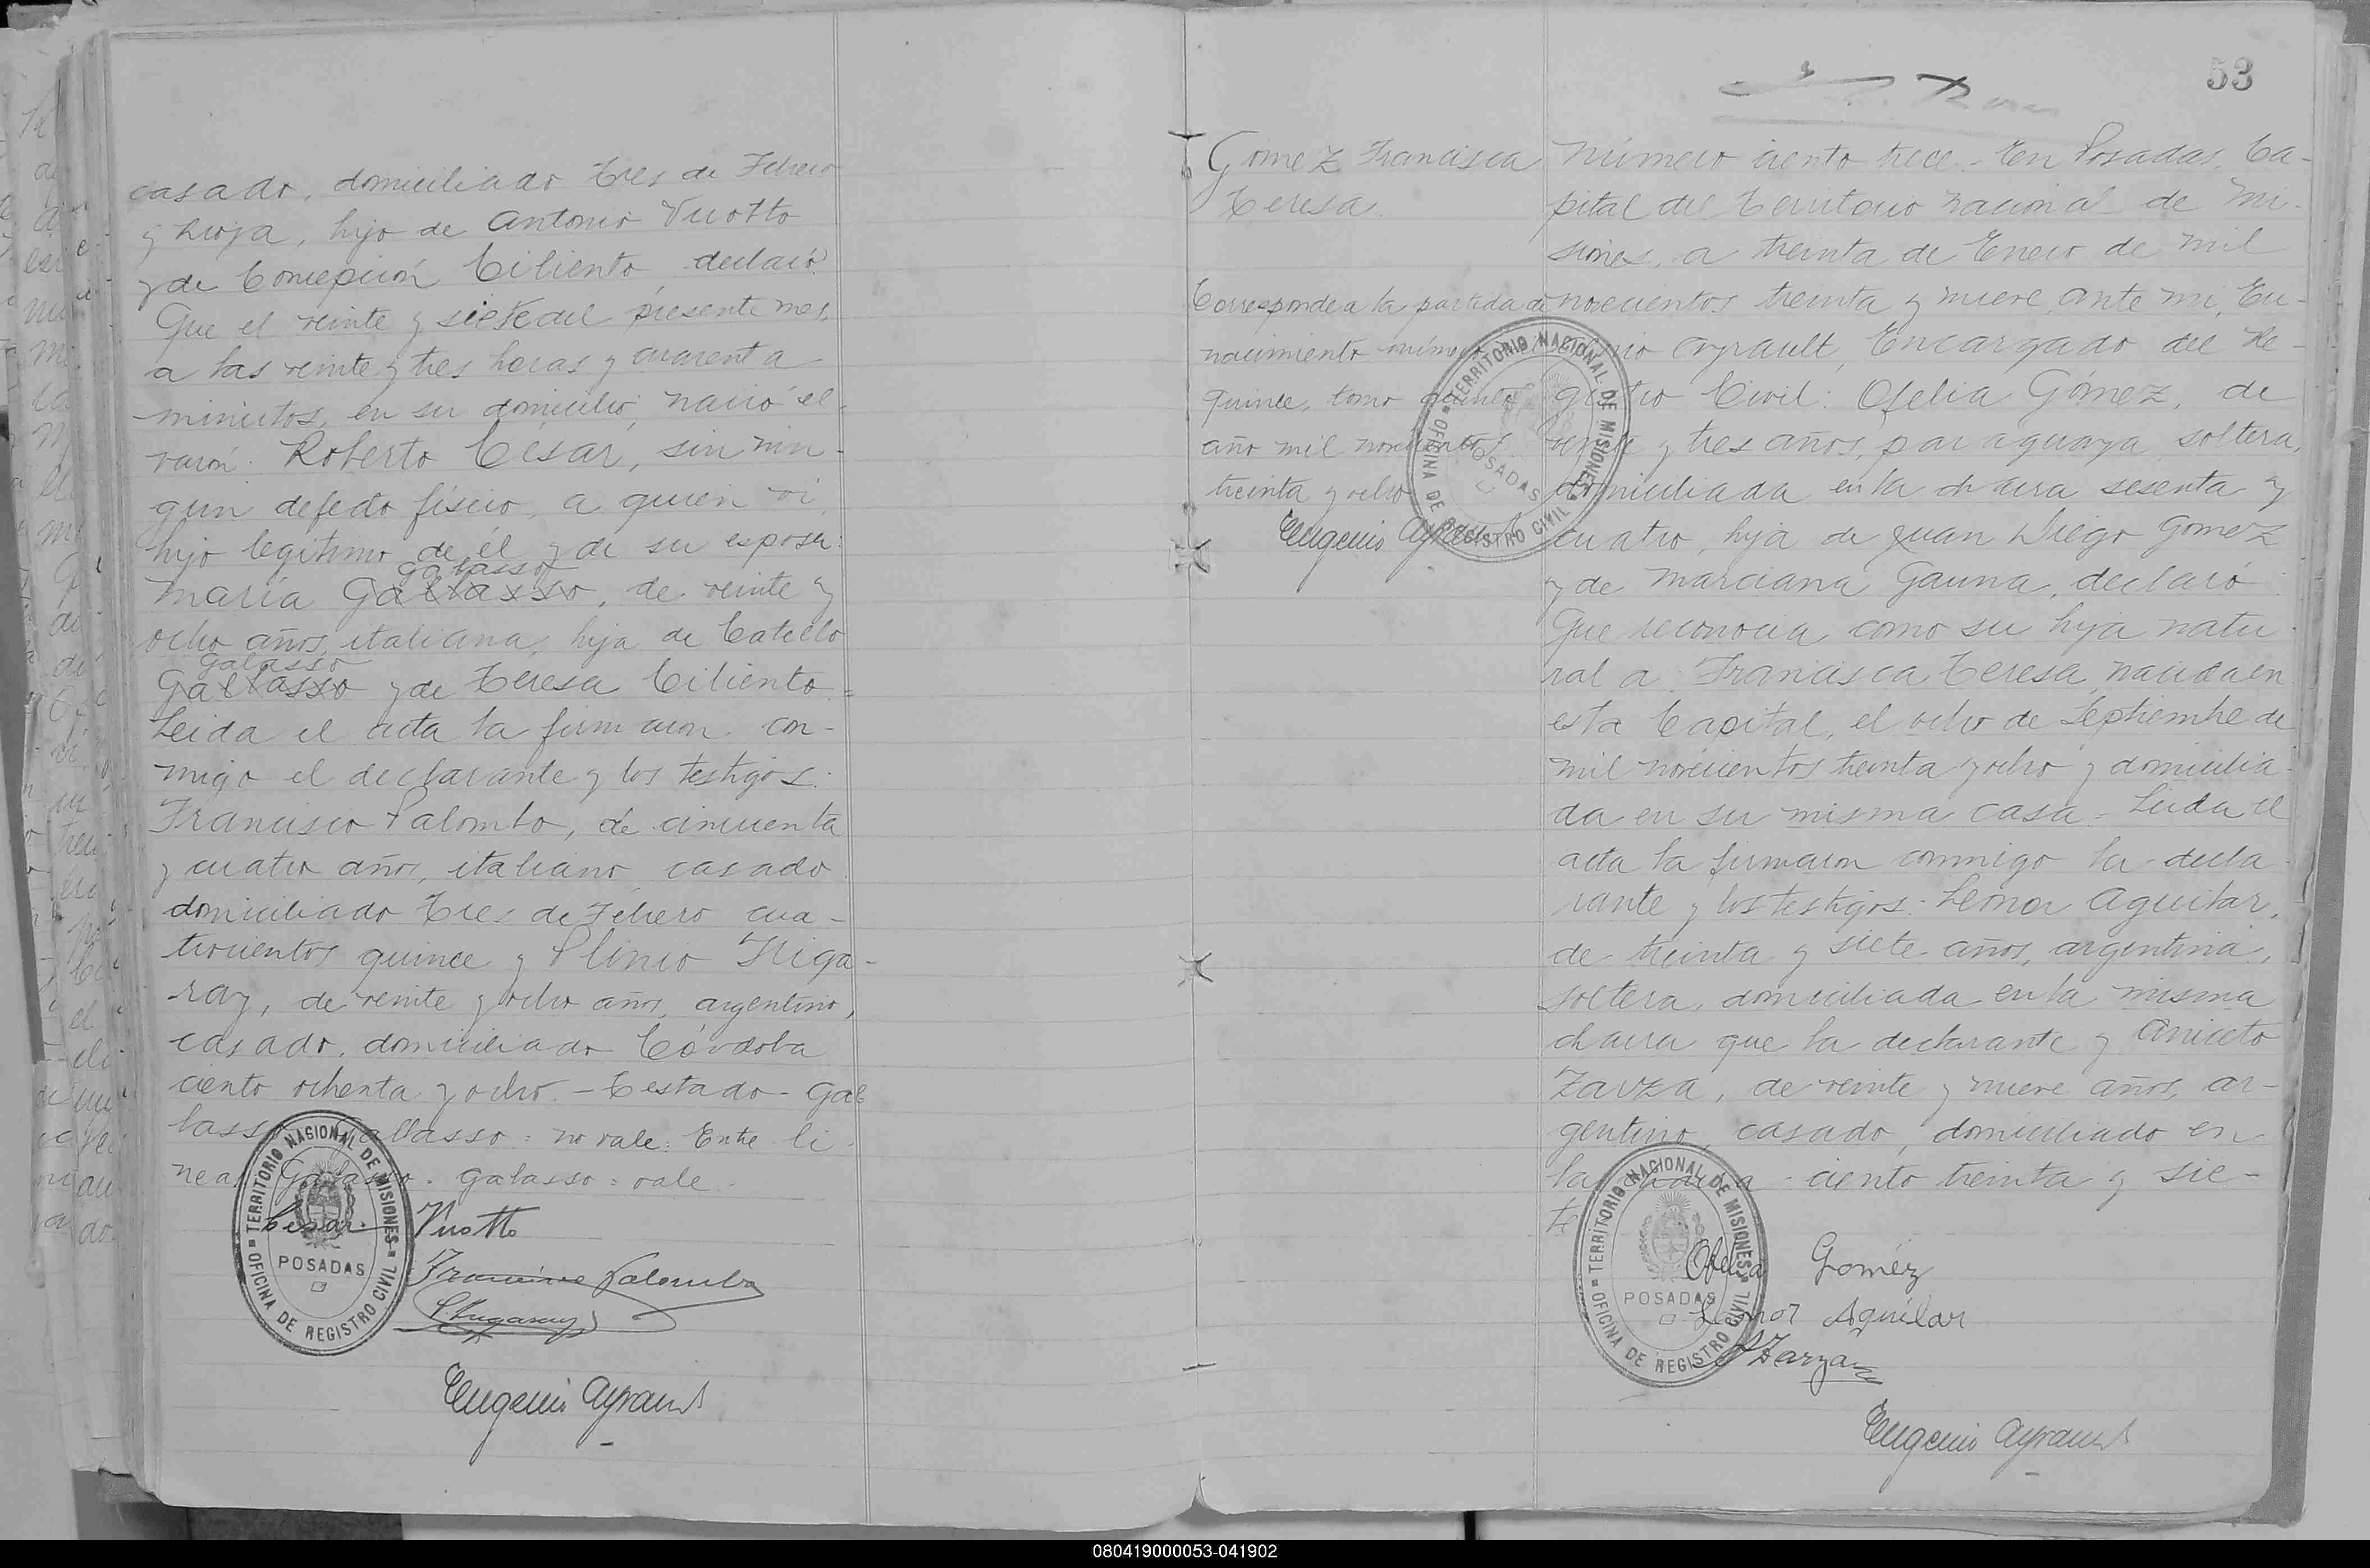 casado, domiciliado Tres de Febrero
y Rioja, hijo de Antonio Vuotto
y de Concepción Ciliento, declaró:
Que el veinte y siete del presente mes,
a las veinte y tres horas y cuarenta
minutos, en su domicilio, nació el
varón: Roberto Cesar, sin nin-
gun defecto físico, a quien vi,
hijo legítimo de él y de su esposa:
Galasso
María Gallasso, de veinte y
ocho años, italiana, hija de Catello
Galasso
Gallasso y de Teresa Ciliento.=
Leida el acta la firmaron con-
migo el declarante y los testigos:
Francisco Palombo, de cincuenta
y cuatro años, italiano, casado
domiciliado Tres de Febrero cua-
trocientos quince y Plinio Iriga-
ray, de veinte y ocho años, argentino,
casado, domiciliado Córdoba
ciento ochenta y ocho.- Testado- Gal
lasso Gallasso: no vale: Entre li-
neas Galasso. Galasso: vale.-
Cesar Vuotto
TERRITORIO NACIONAL DE MISIONES
POSADAS
OFICINA DE REGISTRO CIVIL
Francisco Palombo
Eugenio Ayrault
53
Gomez Francisca
Teresa.
Corresponde a la partida de
nacimiento número
quince, tomo
año mil novecientos
treinta y ocho
Eugenio Ayrault
TERRITORIO NACIONAL DE MISIONES
POSADAS
OFICINA DE REGISTRO CIVIL
Número ciento trece.- En Posadas, Ca-
pital del Territorio Nacional de Mi-
siones, a treinta de Enero de mil
novecientos treinta y nueve, ante mi, Eu-
genio Ayrault, Encargado del Re-
gistro Civil: Ofelia Gómez, de
veinte y tres años, paraguaya soltera,
domiciliada en la chacra sesenta y
cuatro, hija de Juan Diego Gomez
y de Marciana Gauna, declaró:
Que reconocia como su hija natu-
ral a: Francisca Teresa, nacida en
esta Capital, el ocho de Septiembre de
mil novecientos treinta y ocho y domicilia-
da en su misma casa.- Leida el
acta la firmaron conmigo la decla-
rante y los testigos: Leonor Aguilar,
de treinta y siete años, argentina,
soltera, domiciliada en la misma
chacra que la declarante y Aniceto
Zarza, de veinte y nueve años, ar-
gentino, casado, domiciliado en
la chacra ciento treinta y sie-
te
Ofelia Goméz
Leonor Aguilar
A Zarza
TERRITORIO NACIONAL DE MISIONES
POSADAS
OFICINA DE REGISTRO CIVIL
Eugenio Ayrault
080419000053-041902